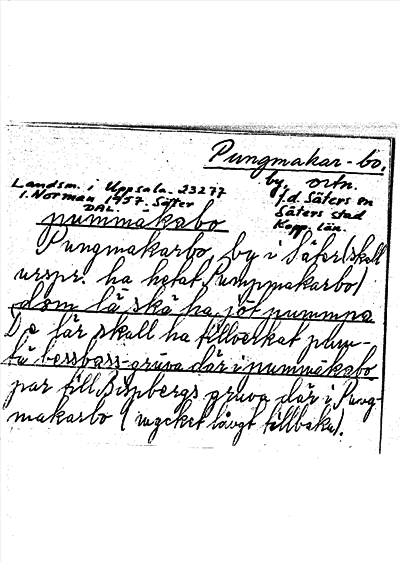 Pungmakar-bo.
by, ortn.
f.d. Säters sn
Säters stad
Kopp. län.
Landsm. i Uppsala. 23277
I. Norman 1957. Säter
DAL.
pummåkabo
Pungmakarbo, by i Säter (skall
urspr. ha hetat Pumpmakarbo)
dom lä skå ha jöt pummpa
De lär skall ha tillverkat pum-
tä bessbass-gruva där i pummåkabo
par till Bispbergs gruva där i Pung-
makarbo (mycket långt tillbaka).